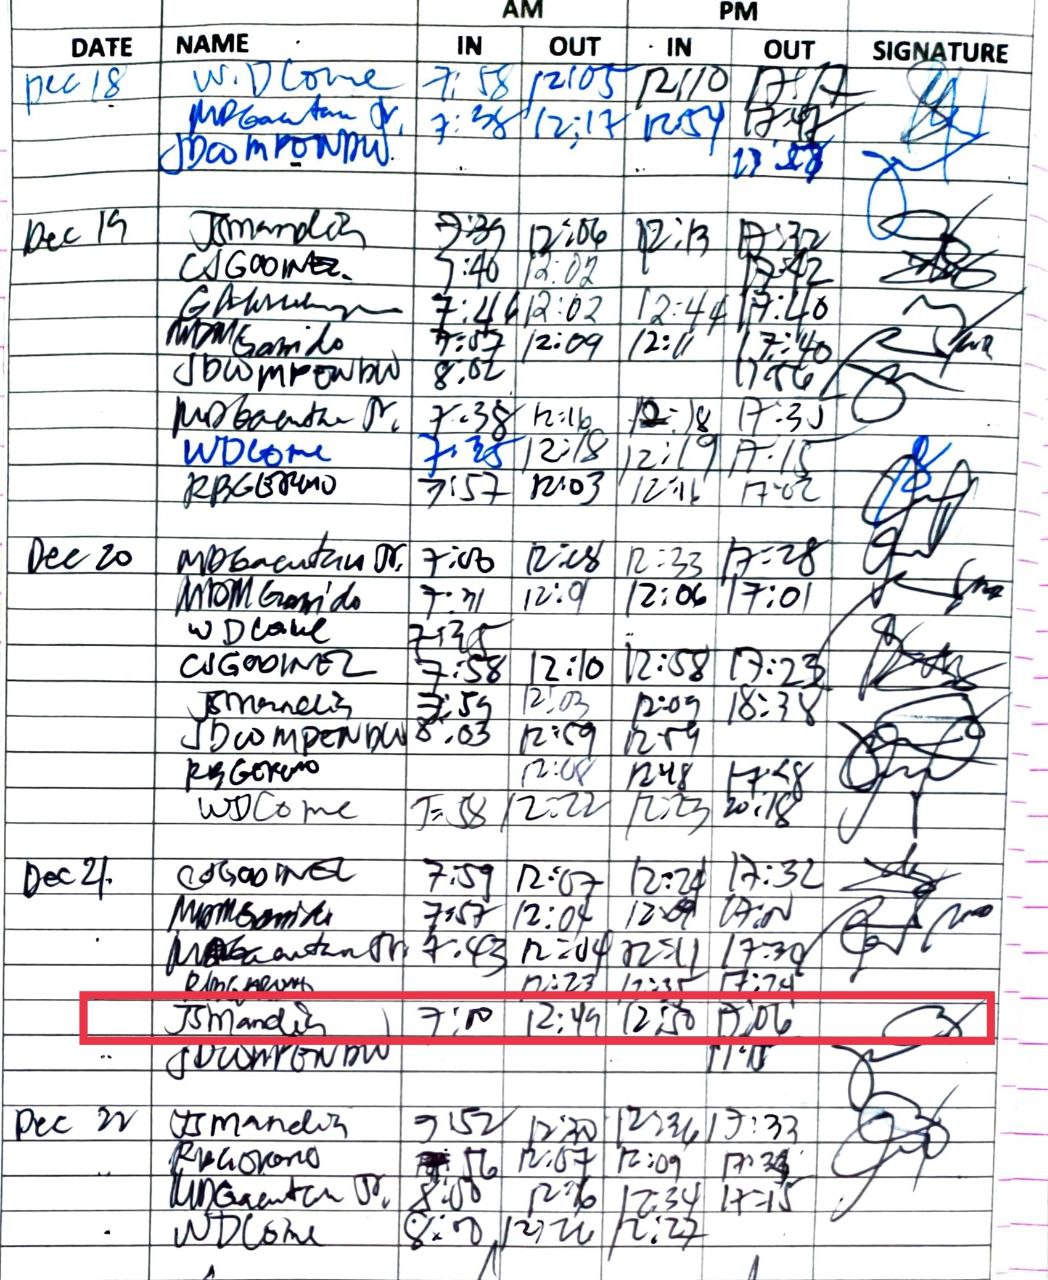 AM PM
DATE NAME IN OUT IN OUT SIGNATURE
Dec 18 W.D Come 7:58 12:05 12:10 17:17
MDGacutan Jr. 7:38 12:17 12:54 17:42
JDCOMPENDIO
Dec 19 JSMandin 7:39 12:06 12:13 17:32
CJGODINEZ 7:40 12:02 17:42
7:46 12:02 12:44 17:40
MDMGarrido 7:57 12:09 12:11 17:40
JDCOMPENDIO 8:02 17:56
MDGacutan Jr. 7:38 12:16 12:18 17:35
WDCome 7:35 12:18 12:19 17:15
7:57 12:03 12:16 17:02
Dec 20 MDGacutan Jr. 12:28 12:33 17:28
MDMGarrido 7:31 12:01 12:06 17:01
WDCome 7:35
CJGODINEZ 7:58 12:10 12:58 17:23
JSMandin 7:59 12:03 12:09 18:38
JDCOMPENDIO 8:03 12:59 12:59
12:08 12:48 17:28
WDCome 7:58 12:22 12:23 20:18
Dec 21. CJGODINEZ 7:59 12:07 12:24 17:32
MDMGarrido 7:57 12:04 12:09
MDGacutan Jr. 7:43 12:04 12:11 17:30
12:23 12:35 17:24
JSMandin 7:50 12:49 12:50 17:06
JDCOMPENDIO
Dec 22 JSMandin 7:52 12:30 12:36 17:33
12:07 12:09
MDGacutan Jr. 8:00 12:16 12:34 17:15
WDCome 8:00 12:26 12:27